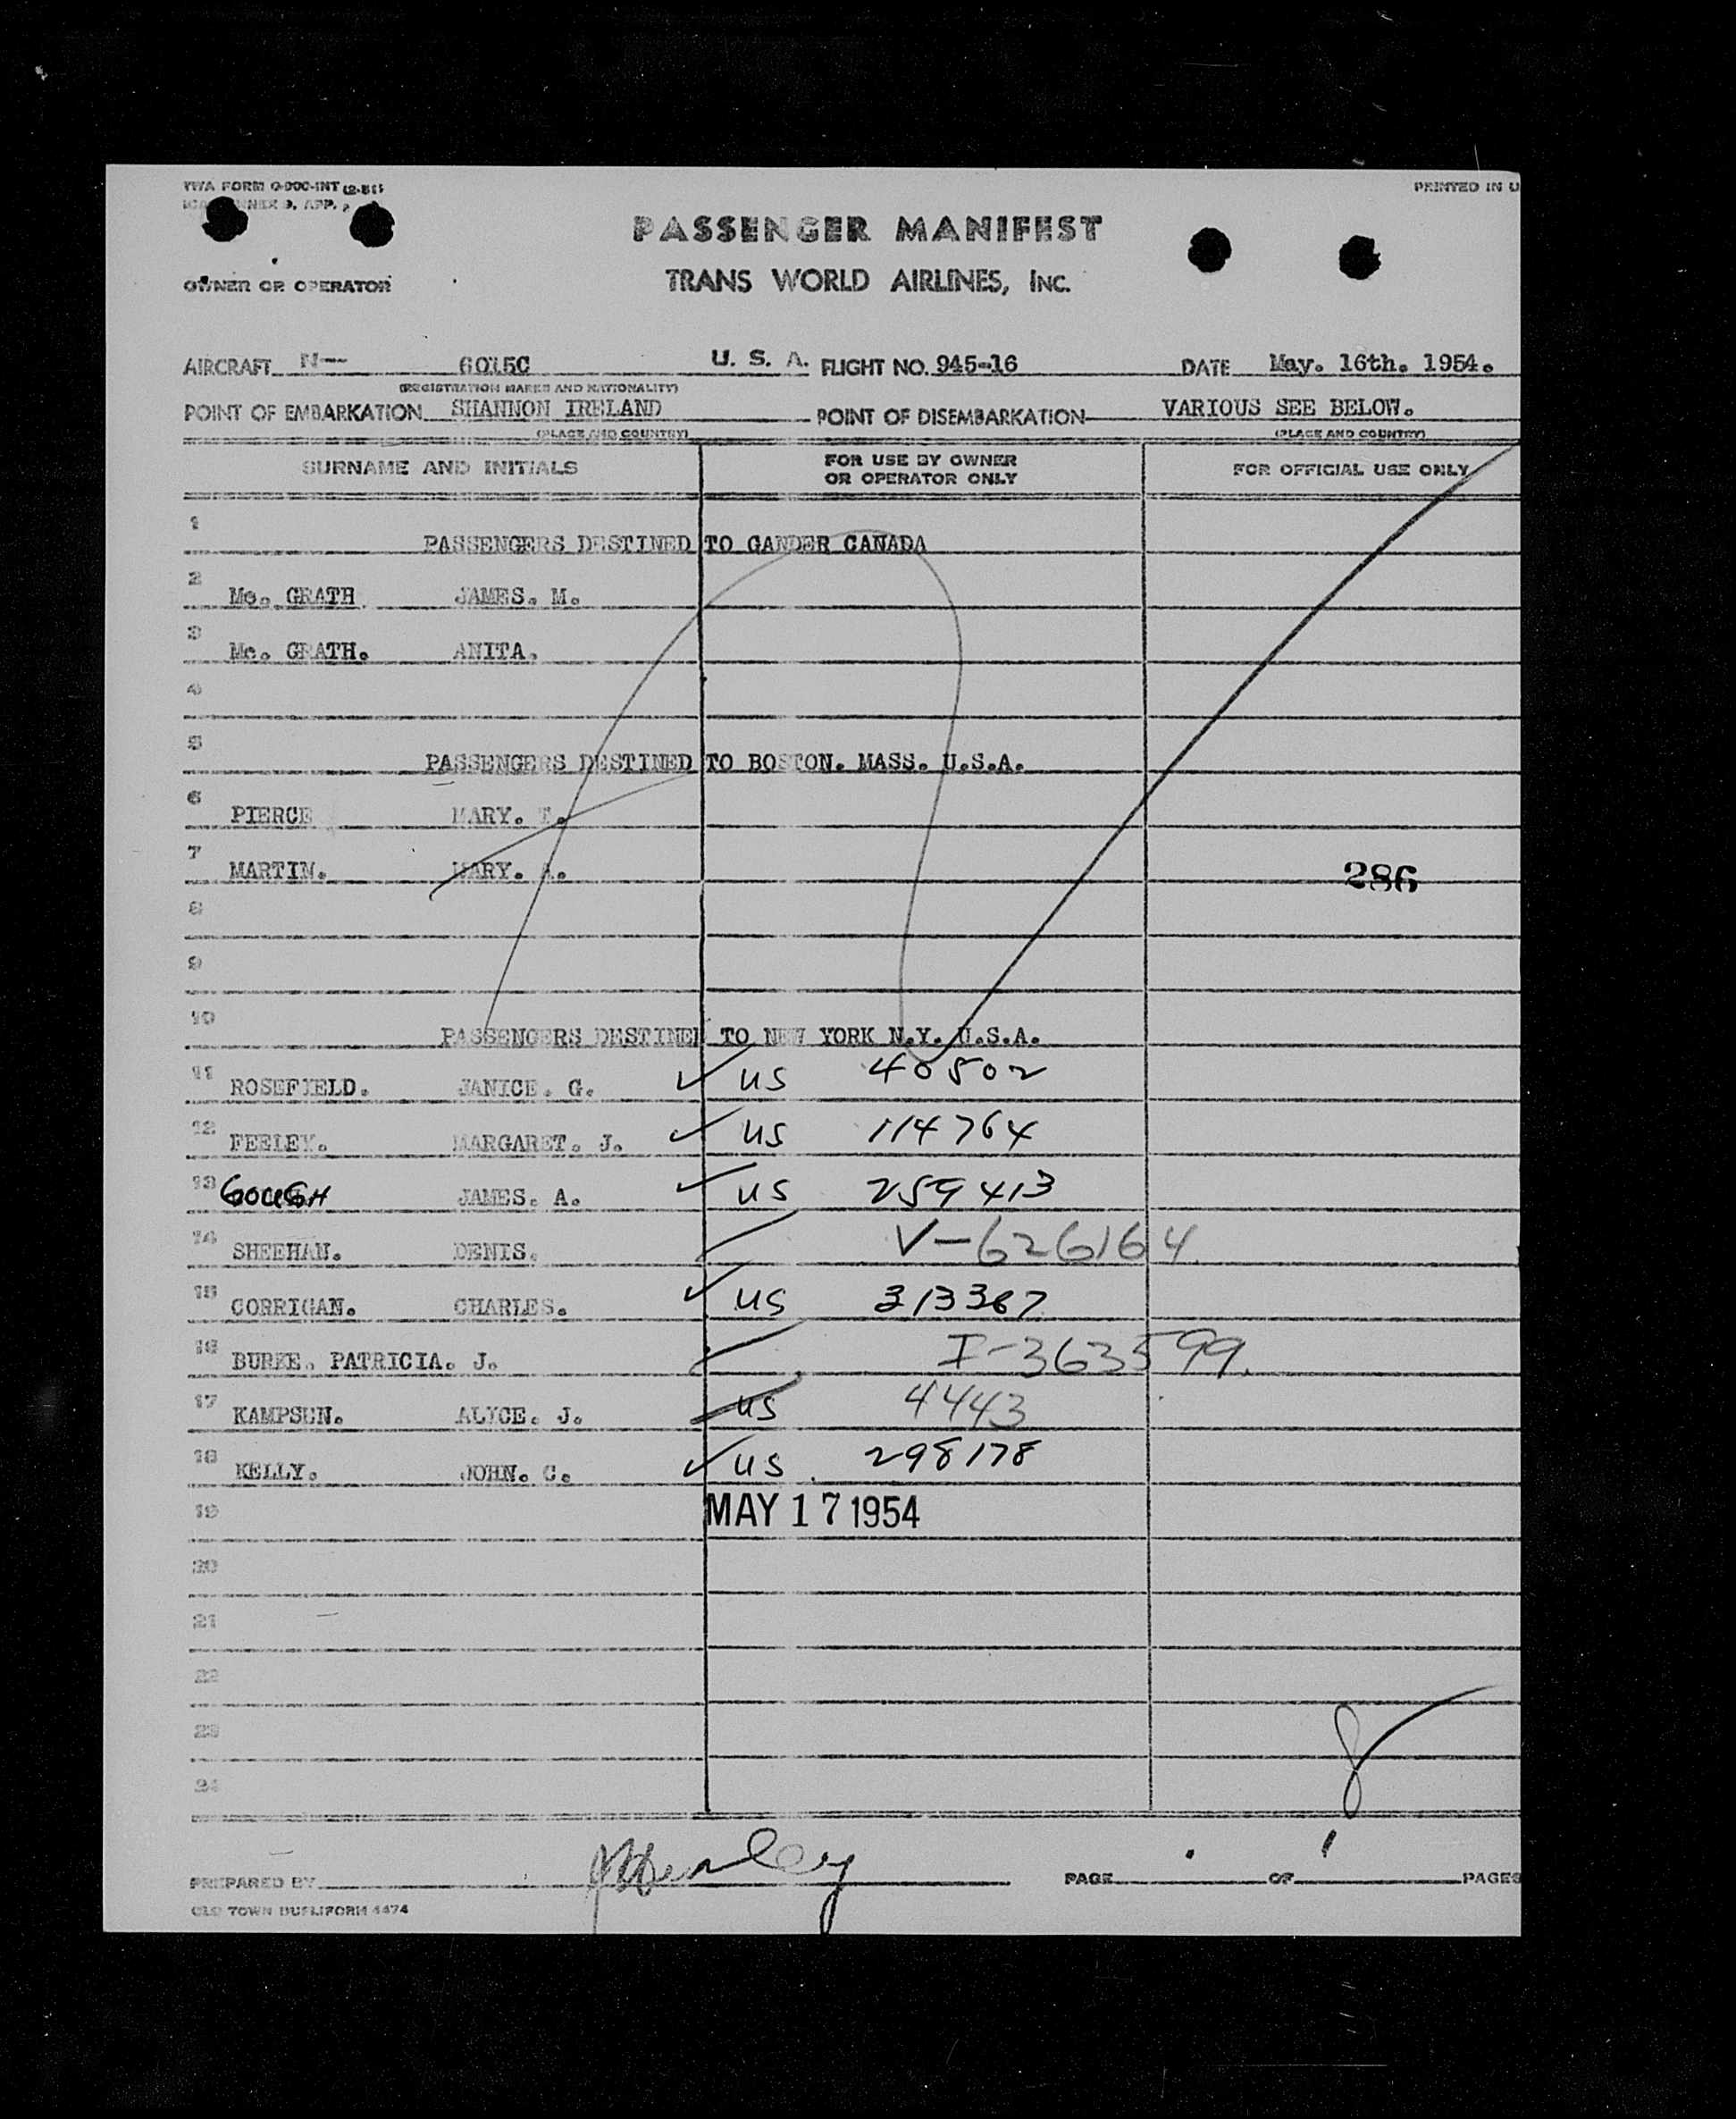 TWA FORM O-900-INT (2-51)
PRINTED IN U
PASSENGER MANIFEST
OWNER OR OPERATOR
TRANS WORLD AIRLINES, INC.
AIRCRAFT N-- 6015C U. S. A. FLIGHT NO. 945-16 DATE May. 16th. 1954.
(REGISTRATION MARKS AND NATIONALITY)
POINT OF EMBARKATION SHANNON IRELAND POINT OF DISEMBARKATION VARIOUS SEE BELOW.
(PLACE AND COUNTRY) (PLACE AND COUNTRY)
SURNAME AND INITIALS FOR USE BY OWNER OR OPERATOR ONLY FOR OFFICIAL USE ONLY
1 PASSENGERS DESTINED TO GANDER CANADA
2 Mc. GRATH JAMES. M.
3 Mc. GRATH. ANITA.
4
5 PASSENGERS DESTINED TO BOSTON. MASS. U.S.A.
6 PIERCE MARY. T.
7 MARTIN. MARY. A. 286
8
9
10 PASSENGERS DESTINED TO NEW YORK N.Y. U.S.A.
11 ROSEFIELD. JANICE. G. ✓ US 40502
12 FEELEY. MARGARET. J. ✓ US 114764
13 GOUGH JAMES. A. ✓ US 259413
14 SHEEHAN. DENIS. V-626164
15 CORRIGAN. CHARLES. ✓ US 313367
16 BURKE. PATRICIA. J. I-363599.
17 KAMPSUN. ALYCE. J. US 4443
18 KELLY. JOHN. C. ✓ US 298178
19 MAY 17 1954
20
21
22
23
24
8
PREPARED BY PAGE OF 1 PAGES
OLD TOWN DUPLIFORM 4474